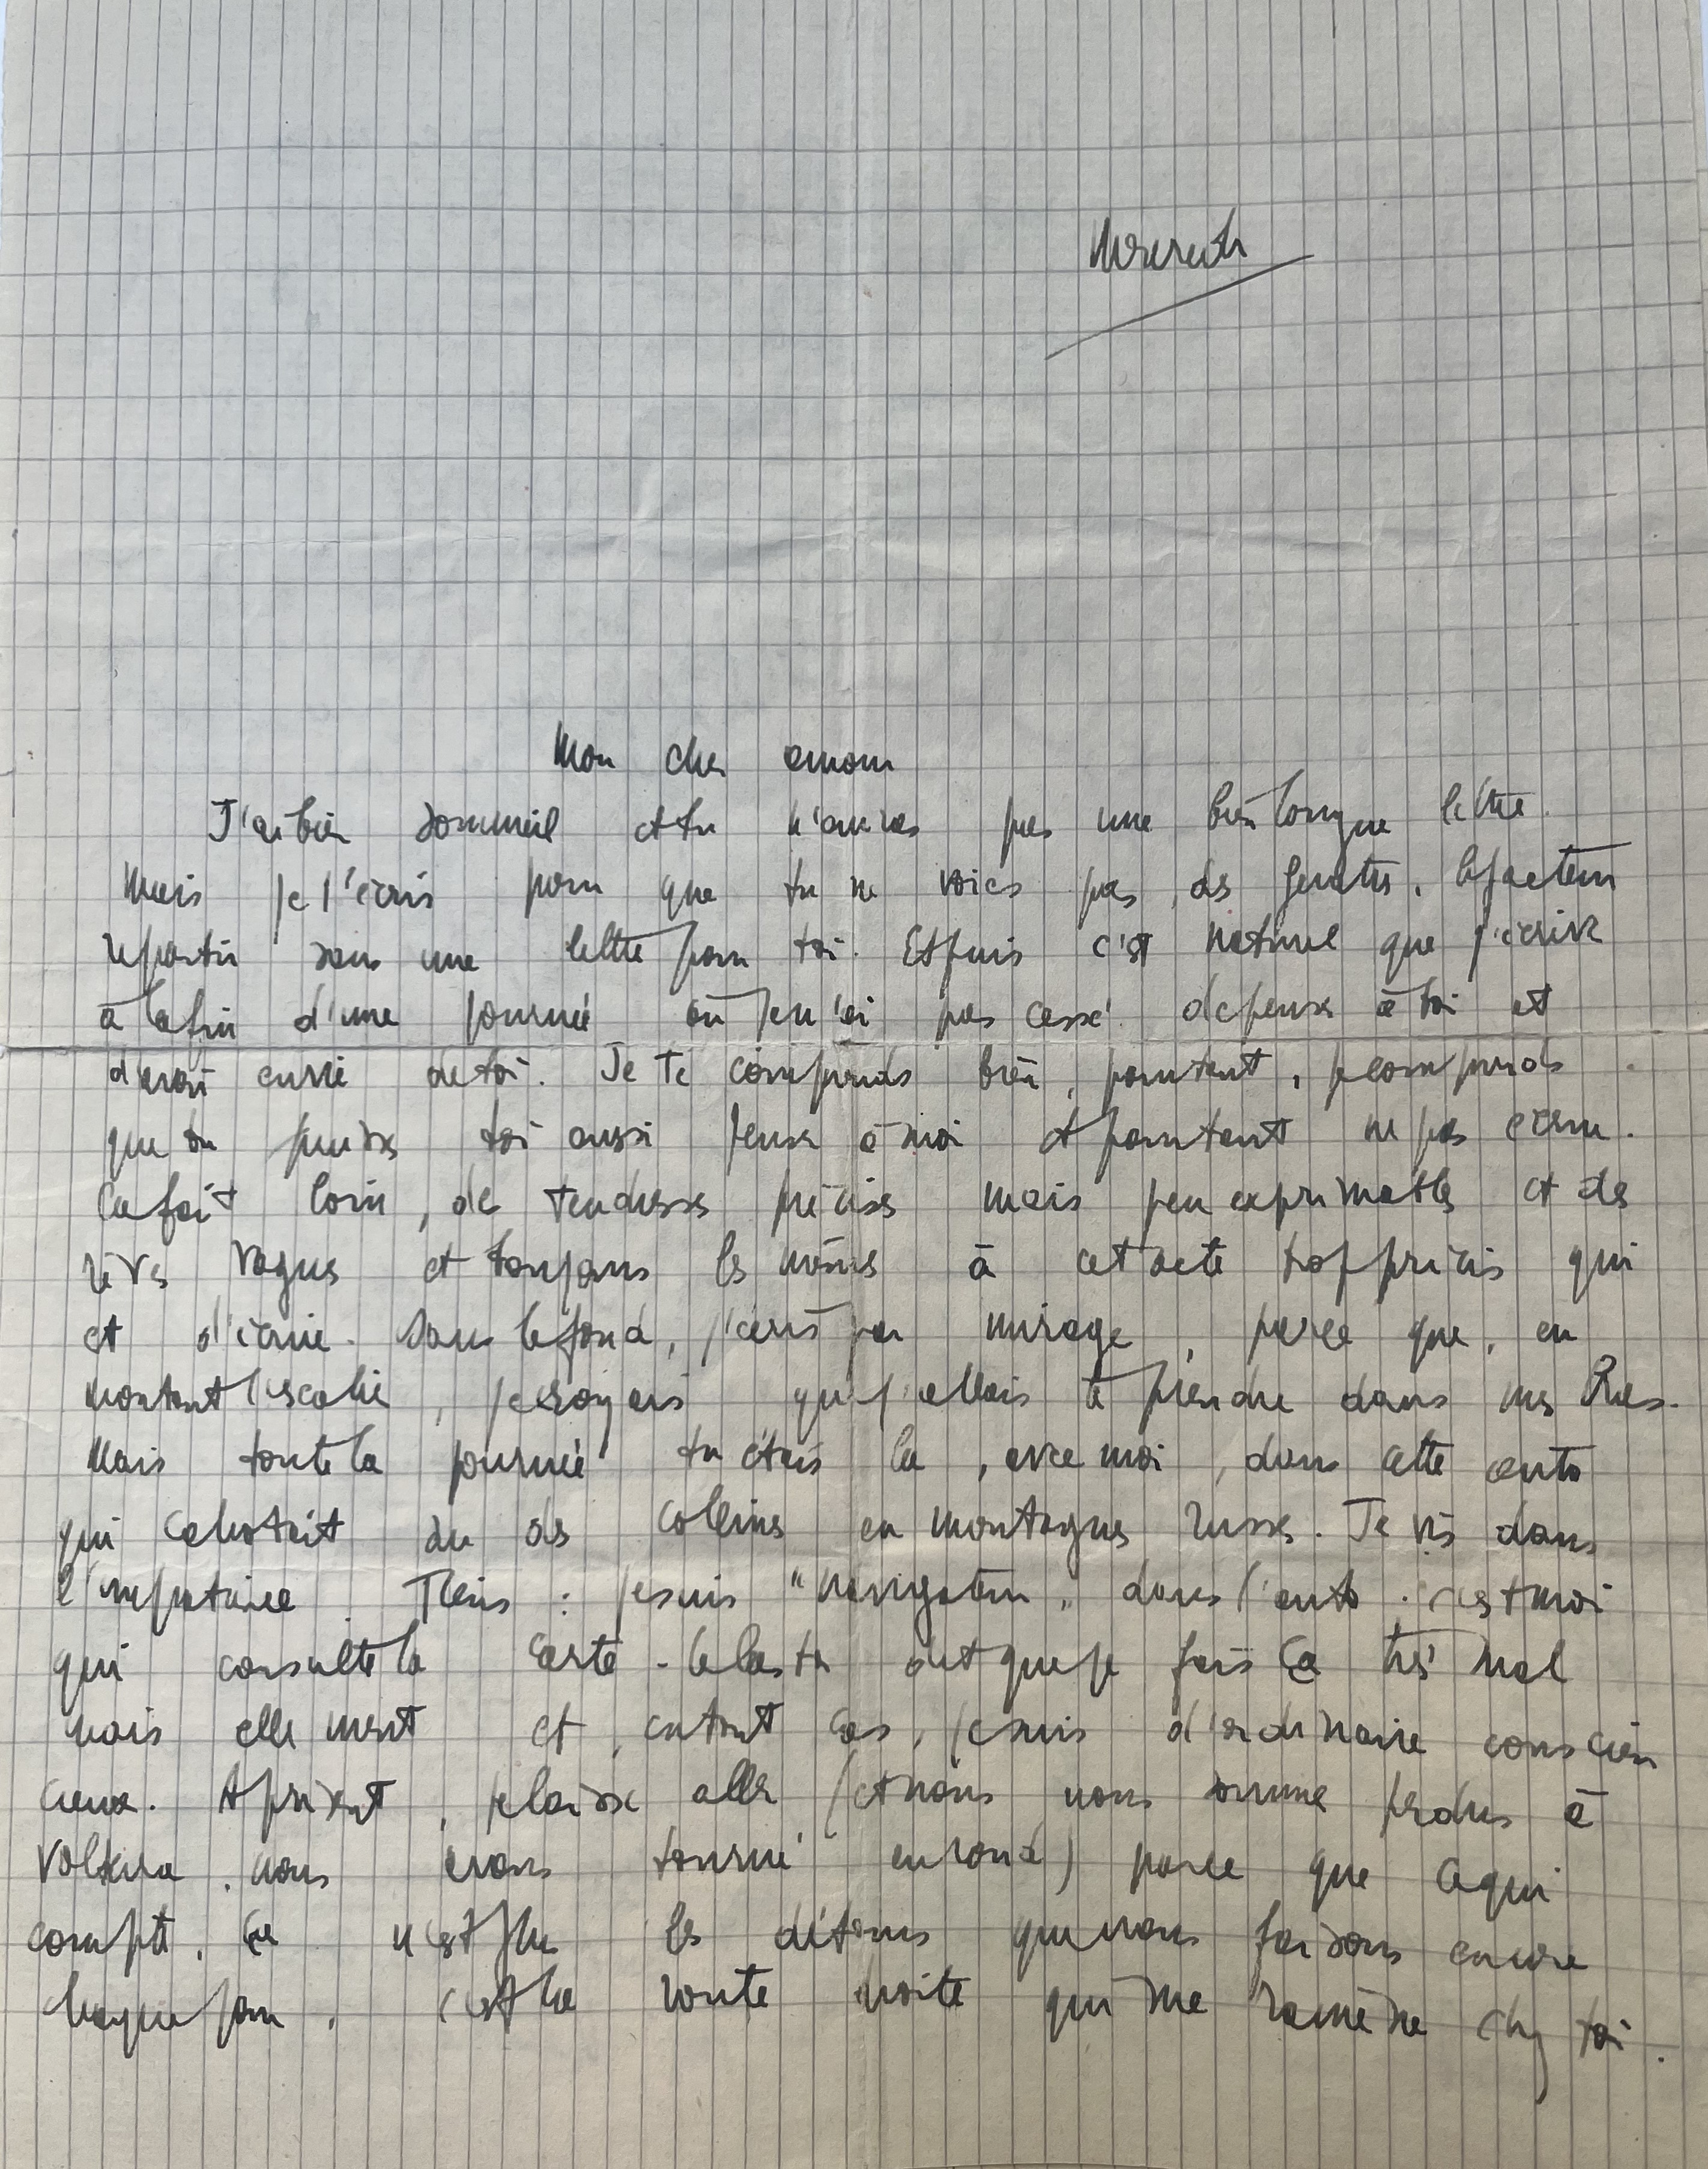 Mercredi
Mon cher amour
J'ai bien sommeil et tu n'auras pas une bien longue lettre.
Mais je t'écris pour que tu ne voies pas, des fenêtres, le facteur
repartir sans une lettre pour toi. Et puis c'est naturel que j'écrive
à la fin d'une journée où je n'ai pas cessé de penser à toi et
d'avoir envie de toi. Je te comprends bien, pourtant, je comprends
que tu puisses toi aussi penser à moi et pourtant ne pas écrire.
Ça fait loin, de tendresses précises mais peu exprimables et de
rêves vagues et toujours les mêmes à cet acte trop précis qui
est d'écrire. Dans le fond, j'écris par mirage, parce que, en
montant l'escalier, je croyais que j'allais te prendre dans mes bras.
Mais toute la journée tu étais là, avec moi, dans cette auto
qui cahotait sur des collines en montagnes russes. Je vis dans
l'impatience. Tiens : je suis "navigateur" dans l'auto. C'est moi
qui consulte la carte. Le Castor dit que je fais ça très mal
mais elle ment et, en tout cas, je suis d'ordinaire conscien
cieux. A présent, je laisse aller (et nous nous sommes perdus à
Volterra, nous avons tourné en rond) parce que ce qui
compte, ce n'est plus les détours que nous faisons encore
chaque jour, c'est la route droite qui me ramène chez toi.